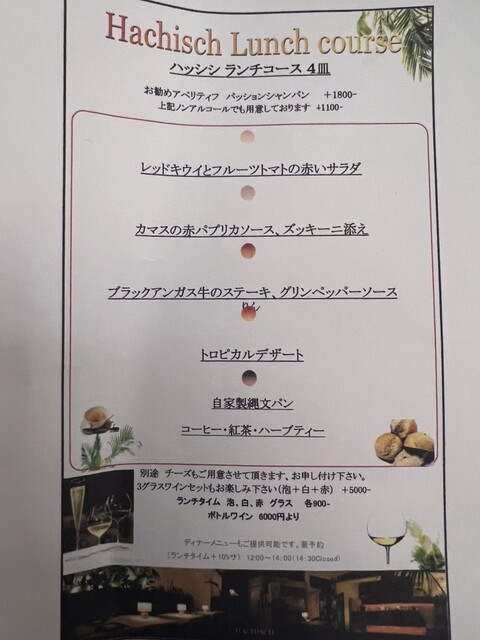 Hachisch Lunch course
ハッシシ ランチコース 4皿
お勧めアペリティフ パッションシャンパン +1800-
上記ノンアルコールでも用意しております +1100-
レッドキウイとフルーツトマトの赤いサラダ
カマスの赤パプリカソース、ズッキーニ添え
ブラックアンガス牛のステーキ、グリンペッパーソース
トロピカルデザート
自家製縄文パン
コーヒー・紅茶・ハーブティー
別途 チーズもご用意させて頂きます、お申し付け下さい。
3グラスワインセットもお楽しみ下さい(泡+白+赤) +5000-
ランチタイム 泡、白、赤 グラス 各900-
ボトルワイン 6000円より
ディナーメニューもご提供可能です。要予約
(ランチタイム+10%サ) 12:00~14:00(14:30Closed)
HACHISCH